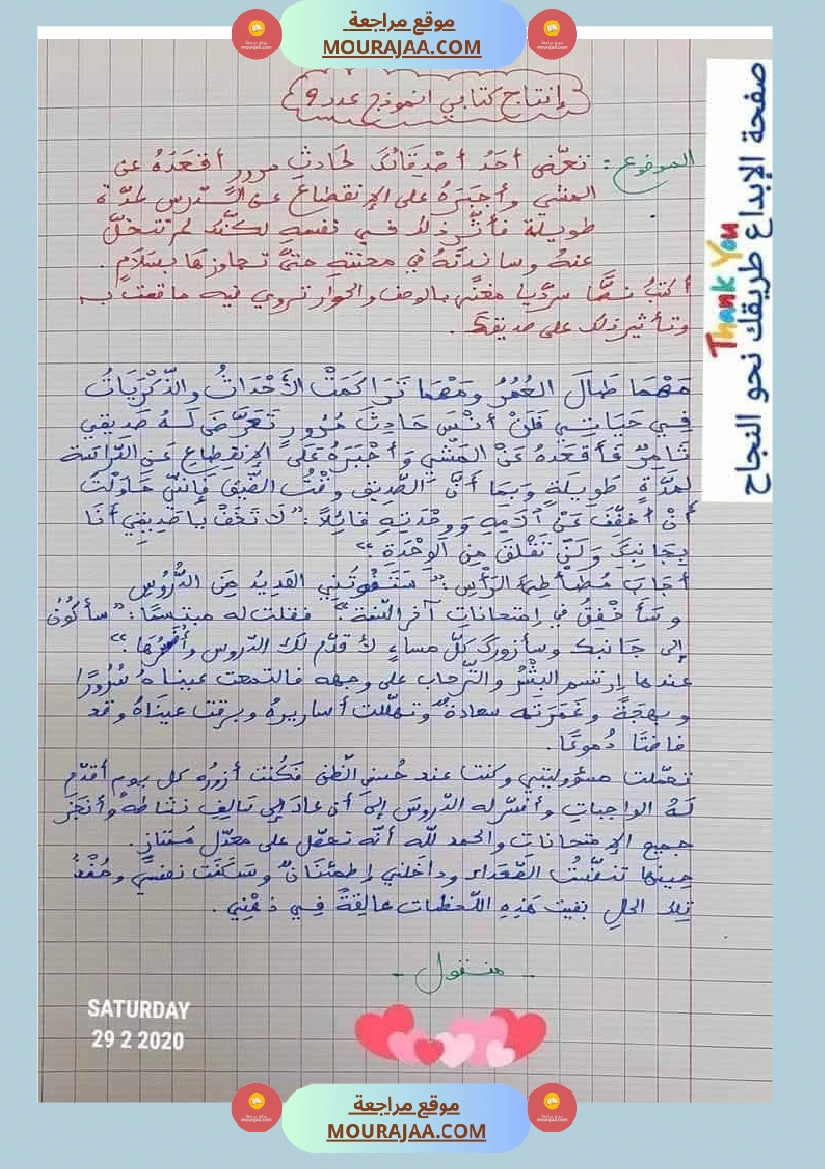 موقع مراجعة
MOURAJAA.COM
إنتاج كتابي انموذج عدد 9
الموضوع: تعرّض أحَدُ أصْدِقَائكَ لحَادثِ مرور أقعَدَهُ عن
المشي وأجبَرَهُ على الإنقطاع عن الدّرس لمدّة
طويلة فأثّر ذلك في نفسهِ لكنّكَ لم تتخلّ
عنهُ وساندتَهُ في محنتهِ حتىّ تجاوزها بسَلاَمٍ.
أكتبُ نصًّا سرديّا مغنًى بالوصف والحوار تروي فيه ما قمتَ بهِ
وتأثير ذلك على صديقكَ.
مَهْمَا طَالَ العُمُرُ ومَهْمَا تَرَاكَمَتْ الأَحْدَاثُ والذّكْرَيَاتُ
فِي حَيَاتِي فَلَنْ أنْسَ حَادِثَ مُرُورٍ تَعَرَّضَ لَهُ صَدِيقِي
ثَامِرٌ فَأقعَدَهُ عَنْ المَشْي وَأجْبَرَهُ عَلَى الإنقطاع عَن الدّراسَة
لمدَّةٍ طَوِيلَةٍ وَبِمَا أنَّ الصَّديق وقْتُ الضّيق فَإنّني حَاوَلْتُ
أنْ أخَفّفَ عَنْ آلامِهِ وَوحْدَتِهِ قَائِلاً: "لاَ تَخَفْ يا صَديقِي أنَا
بِجَانِبكَ وَلَنْ تَقْلَقَ مِن الوِحْدَةِ."
أجَابَ مُطَأطِأ الرَّأسِ: "سَتَفُوتُنِي العَدِيدُ مِنَ الدُّرُوسِ
وسَأخْفِقُ في إمتحاناتِ آخر السّنة." فقلت له مبتسمًا: "سأكُونُ
إلى جَانبك وسأزورك كلّ مساءٍ لأقدّم لك الدّروس وأفسّرها."
عندها إرتسم البِشْرُ والتّرحاب على وجهه فالتمعت عيناهُ سُرُورًا
وبهجَةً وغَمَرَته سعادةٌ وتهلّلت أساريرهُ وبرقت عينَاهُ وقد
فاضتَا دُموعًا.
تحمّلت مسؤوليّتي وكنت عند حُسنِ الظّن فكُنتُ أزورُه كل يوم أقدّم
لَهُ الواجباتِ وأفسّر له الدّروسَ إلىَ أن عادَ إلى سَالِفِ نشاطهُ وأنجَزَ
جميع الإمتحاناتِ والحمد للّه أنّه تحصّل على معدّل مُمتازٍ.
حينها تنفّستُ الصّعداء وداخَلني إطمئنَانٌ وسَكَنَت نفسي ومُنْذُ
تِلكَ الحالِ بقيت هَذِهِ اللّحظات عالِقةً فِي ذهْنِي.
- منقول -
SATURDAY
29 2 2020
Thank You
صفحة الإبداع طريقك نحو النجاح
موقع مراجعة
MOURAJAA.COM